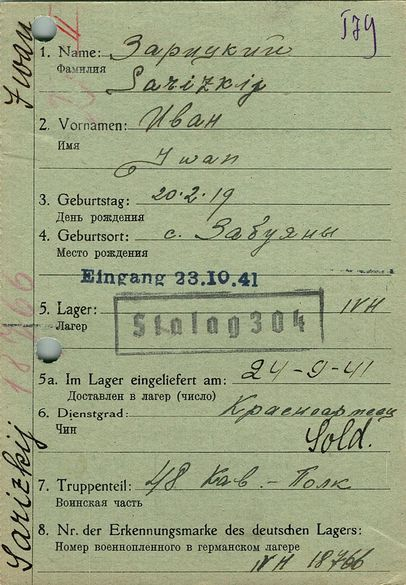 Iwan
II
179
1. Name: Зарицкий
Фамилия
Sarizkij
2. Vornamen: Иван
Имя
Iwan
3. Geburtstag: 20.2.19
День рождения
4. Geburtsort: с. Забуяны
Место рождения
Eingang 23.10.41
5. Lager: IV H
Лагер
Stalag 304
18766
5a. Im Lager eingeliefert am: 24-9-41
Доставлен в лагер (число)
6. Dienstgrad: Красноармеец
Чин
Sold.
7. Truppenteil: 48 Кав. - Полк
Воинская часть
8. Nr. der Erkennungsmarke des deutschen Lagers:
Номер военнопленного в германском лагере
IV H 18766
Sarizkij